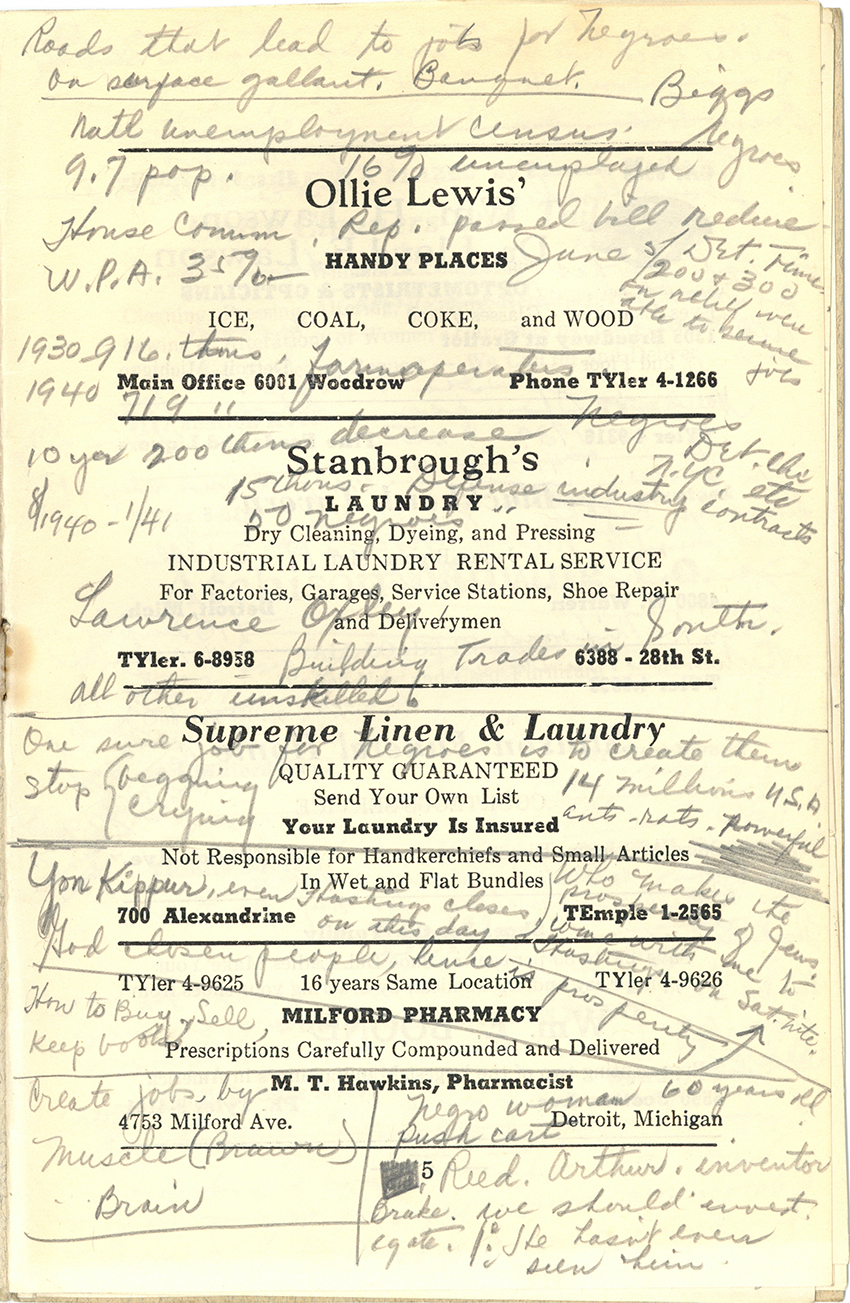 Roads that lead to jobs for Negroes.
On surface gallant. Banquet. Biggs
Natl unemployment census. Negroes
9.7 pop. 16% unemployed
Ollie Lewis'
House Comm. Rep. passed bill reduce
W.P.A. 35%
HANDY PLACES
June 5/ Det. Times
200 & 300
on relief were
able to secure
jobs
ICE, COAL, COKE, and WOOD
1930 916. thous. farm operators
Main Office 6001 Woodrow Phone TYler 4-1266
1940 719 "
10 yer 200 thous decrease Negroes
Stanbrough's
Det. Chi
N.Y.C. etc
15 thous. Defense industry contracts
LAUNDRY
1940 - 1/41 50 Negroes
Dry Cleaning, Dyeing, and Pressing
INDUSTRIAL LAUNDRY RENTAL SERVICE
For Factories, Garages, Service Stations, Shoe Repair
Lawrence Oxley
and Deliverymen
Building Trades in South.
TYler. 6-8958 6388 - 28th St.
all other unskilled!
Supreme Linen & Laundry
One sure job for Negroes is to create them
Stop begging
crying
QUALITY GUARANTEED
14 millions U.S.A
Send Your Own List
ants - rats - powerful
Your Laundry Is Insured
Not Responsible for Handkerchiefs and Small Articles
In Wet and Flat Bundles
Yon Kippur, even Hastings closes
on this day
Who makes the
prosperity of Jews.
Come with me to
Hastings on Sat. nite.
700 Alexandrine TEmple 1-2565
God chosen people, hence is prosperity
TYler 4-9625 16 years Same Location TYler 4-9626
How to Buy, Sell,
Keep books
MILFORD PHARMACY
Prescriptions Carefully Compounded and Delivered
M. T. Hawkins, Pharmacist
Create jobs, by
4753 Milford Ave. Detroit, Michigan
Muscle (Brawn)
Brain
Negro woman 60 years old
push cart
5
Reed. Arthur. inventor
Brake. we should invest.
igate. He hasn't even
seen him.